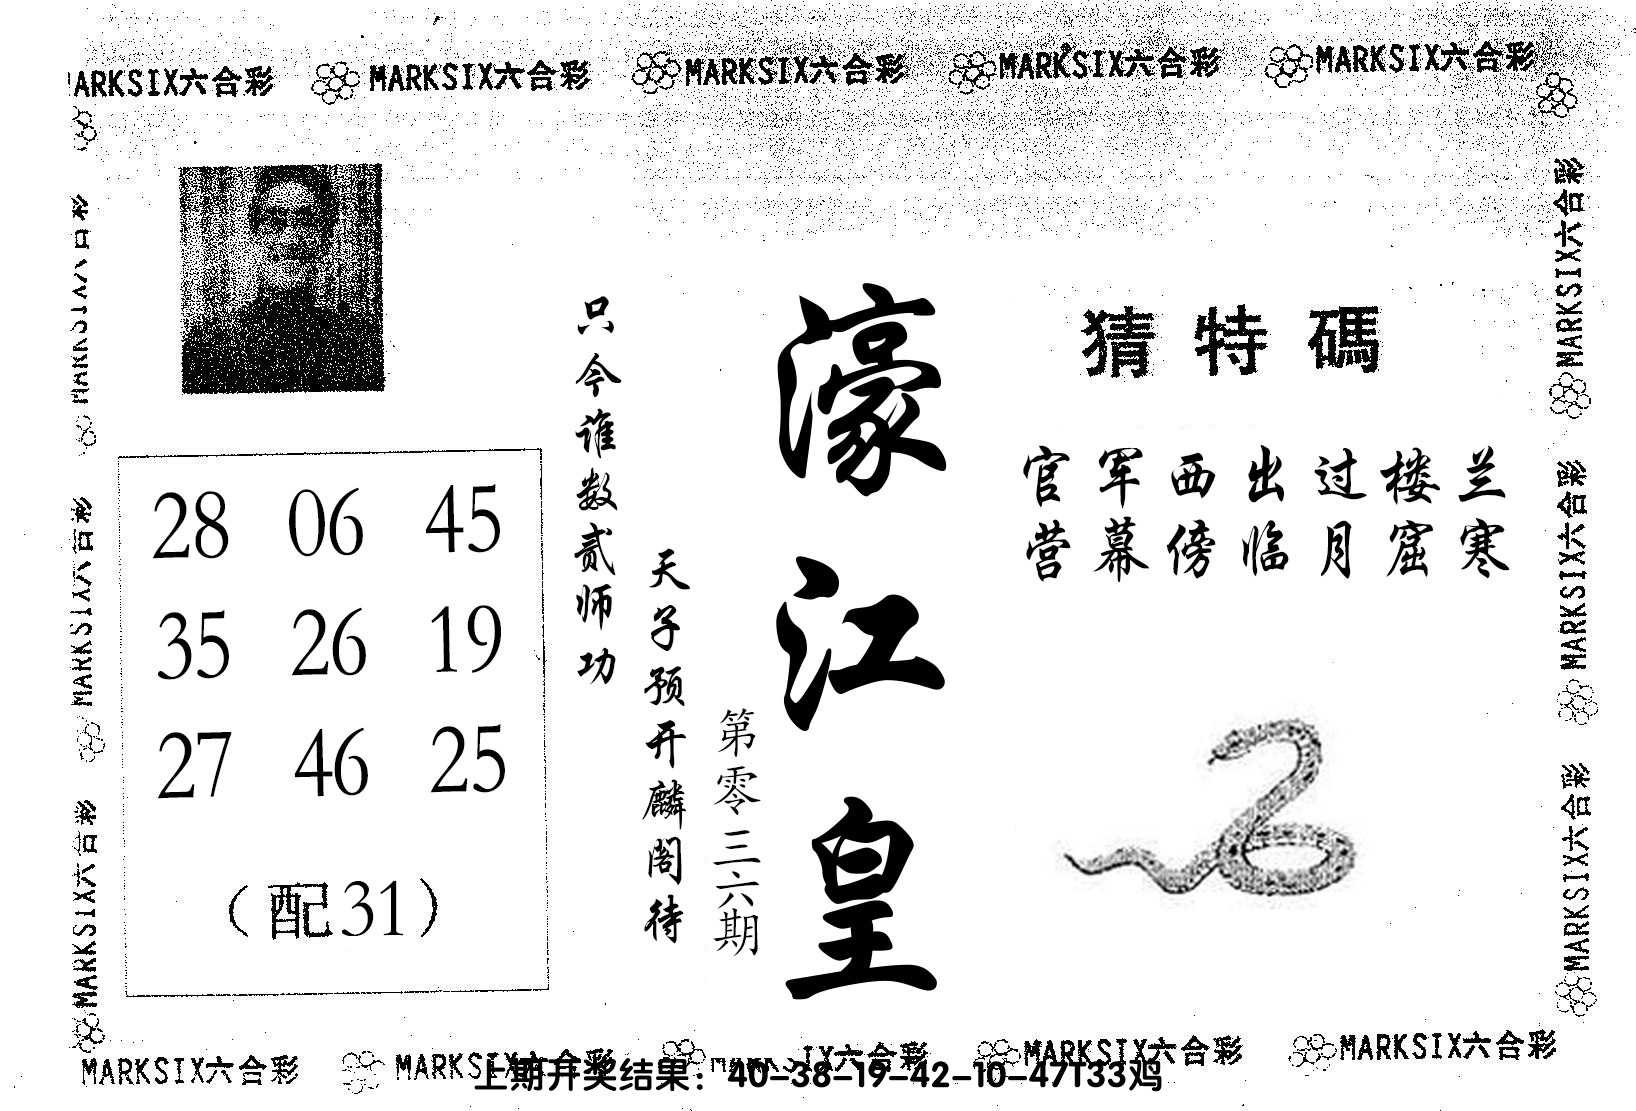 MARKSIX六合彩 MARKSIX六合彩 MARKSIX六合彩 MARKSIX六合彩 MARKSIX六合彩
猜特碼
官军西出过楼兰
营幕傍临月窟寒
濠江皇
第零三六期
天子预开麟阁待
只今谁数贰师功
28 06 45
35 26 19
27 46 25
(配31)
MARKSIX六合彩
MARKSIX六合彩
MARKSIX六合彩
MARKSIX六合彩
MARKSIX六合彩
MARKSIX六合彩
MARKSIX六合彩 MARKSIX六合彩 MARKSIX六合彩 MARKSIX六合彩
上期开奖结果：40-38-19-42-10-47T33鸡